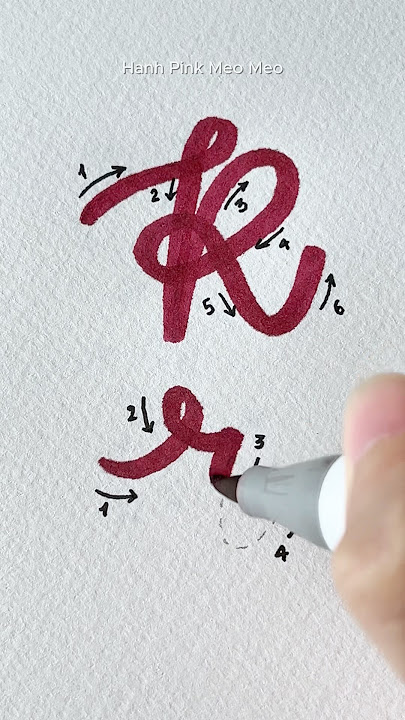 Hanh Pink Meo Meo
1
2
3
4
R
5
6
2
3
r
1
4